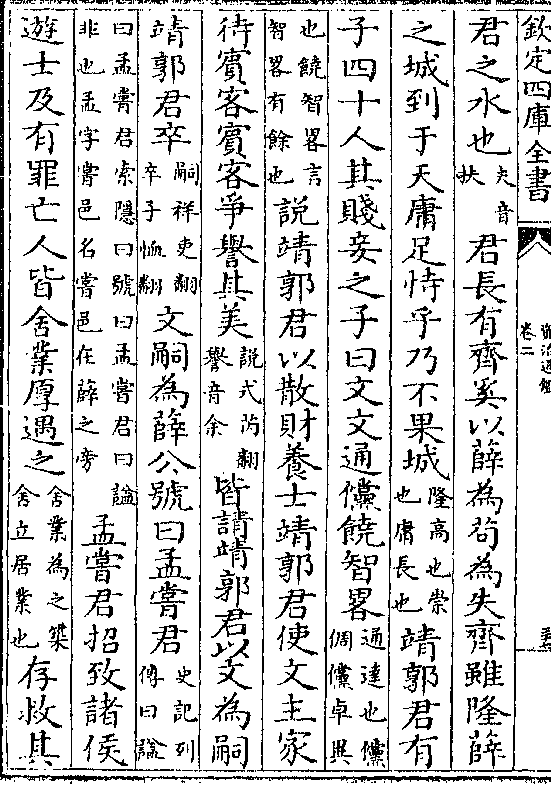 欽定四庫全書
資治通鑑
卷二
君之水也夫音扶君長有齊奚以薛為苟為失齊雖隆薛
之城到于天庸足恃乎乃不果城隆高也崇也庸長也靖郭君有
子四十人其賤妾之子曰文文通儻饒智畧通達也儻倜儻卓異
也饒智畧言智畧有餘也說靖郭君以散財養士靖郭君使文主家
待賓客賓客爭譽其美說式芮翻譽音余皆請靖郭君以文為嗣
靖郭君卒嗣祥吏翻卒子恤翻文嗣為薛公號曰孟嘗君史記列傳曰諡
曰孟嘗君索隱曰號曰孟嘗君曰諡非也孟字嘗邑名嘗邑在薛之旁孟嘗君招致諸侯
遊士及有罪亡人皆舍業厚遇之舍業為之築舍立居業也存救其